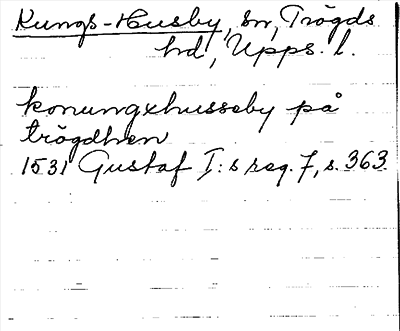 Kungs-Husby, sn, Trögds
hd, Upps. l.
konungxhusseby på
trögdhen
1531 Gustaf I:s reg. 7, s. 363